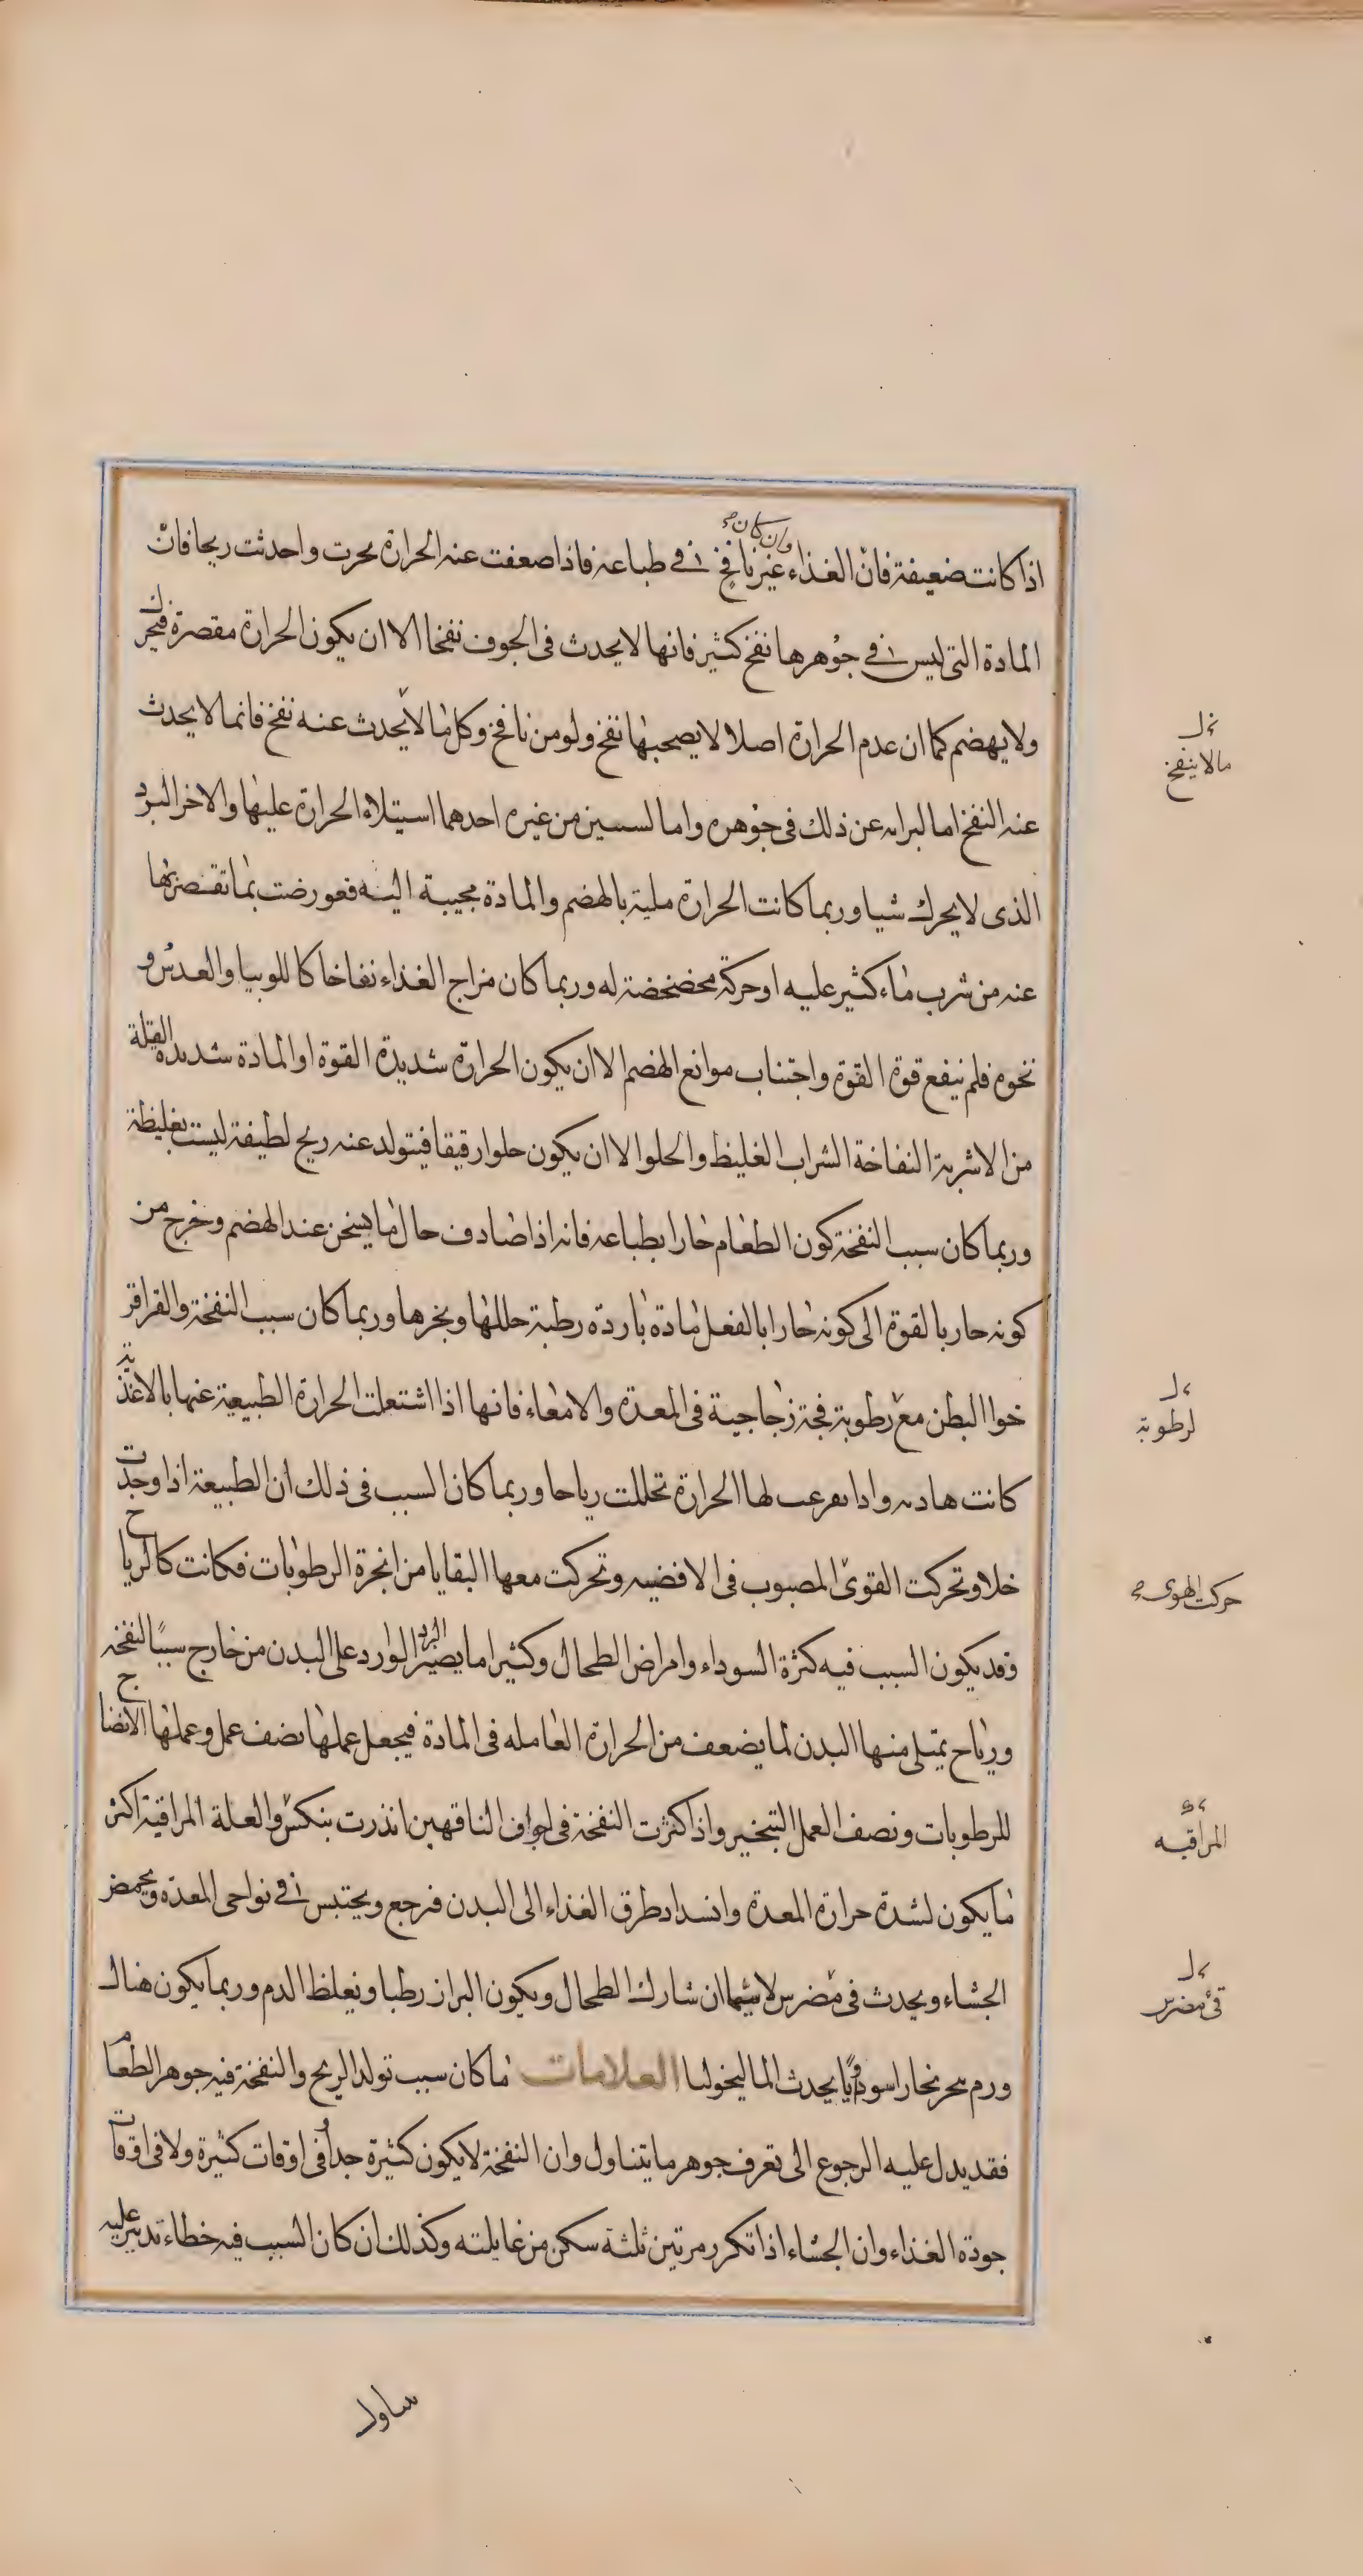 اذا كانت ضعيفة فانّ الغذاء وان كان غير نافخ في طباعه فاذا ضعفت عنه الحرارة بحرت واحدثت ريحا فانّ
المادة التي ليس في جوهرها نفخ كثير فانها لا يحدث في الجوف نفخا الا ان يكون الحرارة مقصرة فيحرك
ولا يهضم كما ان عدم الحرارة اصلا لا يصحبها نفخ ولو من نافخ وكل ما لا يحدث عنه نفخ فانما لا يحدث
مالا ينفخ
عنه النفخ اما لبراته عن ذلك في جوهره واما لسببين من غيره احدهما استيلاء الحرارة عليها والاخر البرد
الذي لا يحرك شيا وربما كانت الحرارة ملية بالهضم والمادة مجيبة اليه فعورضت بما تقصر بها
عنه من شرب ماء كثير عليه او حركة مخضخضة له وربما كان مزاج الغذاء نفاخا كاللوبيا والعدس و
نحوه فلم ينفع قوة القوة واجتناب موانع الهضم الا ان يكون الحرارة شديدة القوة او المادة شديدة القلة
من الاشربة النفاخة الشراب الغليظ والحلو الا ان يكون حلوا رقيقا فيتولد عنه ريح لطيفة ليست بغليظة
وربما كان سبب النفخة كون الطعام حارا بطباعه فانه اذا صادف حال ما يسخن عند الهضم وخرج من
كونه حار بالقوة الى كونه حارا بالفعل مادة باردة رطبة حللها وبخرها وربما كان سبب النفخة والقراقر
خوا البطن مع رطوبة فجة زجاجية في المعدة والامعاء فانها اذا اشتعلت الحرارة الطبيعية عنها بالاغذية
لرطوبة
كانت هادىه واذا تفرغت لها الحرارة تحللت رياحا وربما كان السبب في ذلك ان الطبيعة اذا وجدت
خلا وتحركت القوى المصبوب في الافضيه وتحركت معها البقايا من ابخرة الرطوبات فكانت كالرياح
حركت الهوى صح
وقد يكون السبب فيه كثرة السوداء وامراض الطحال وكثيرا ما يصير البرد الوارد على البدن من خارج سببا لنفخه
ورياح يمتلى منها البدن لما يضعف من الحرارة العامله في المادة فيجعل عملها نصف عمل وعملها الانضاج
للرطوبات ونصف العمل التبخير واذ اكثرت النفخة في اجواف الناقهين انذرت بنكس والعلة المراقية اكثر
المراقيه
ما يكون لشدة حرارة المعدة وانسداد طرق الغذاء الى البدن فرجع ويحتبس في نواحي المعدة ويحمض
الجشاء ويحدث في مضرس لا سيما ان شارك الطحال ويكون البراز رطبا ويغلظ الدم وربما يكون هناك
قئ مضرس
ورم يبحر بخارا سوداويا يحدث الماليخوليا العلامات ما كان سبب تولد الريح والنفخة فيه جوهر الطعام
فقد يدل عليه الرجوع الى تعرف جوهر ما يتناول وان النفخة لا يكون كثيرة جدا في اوقات كثيرة ولا في اوقات
جودة الغذاء وان الجشاء اذا تكرر مرتين ثلثة سكن من غايلته وكذلك ان كان السبب فيه خطاء تدبير عليه